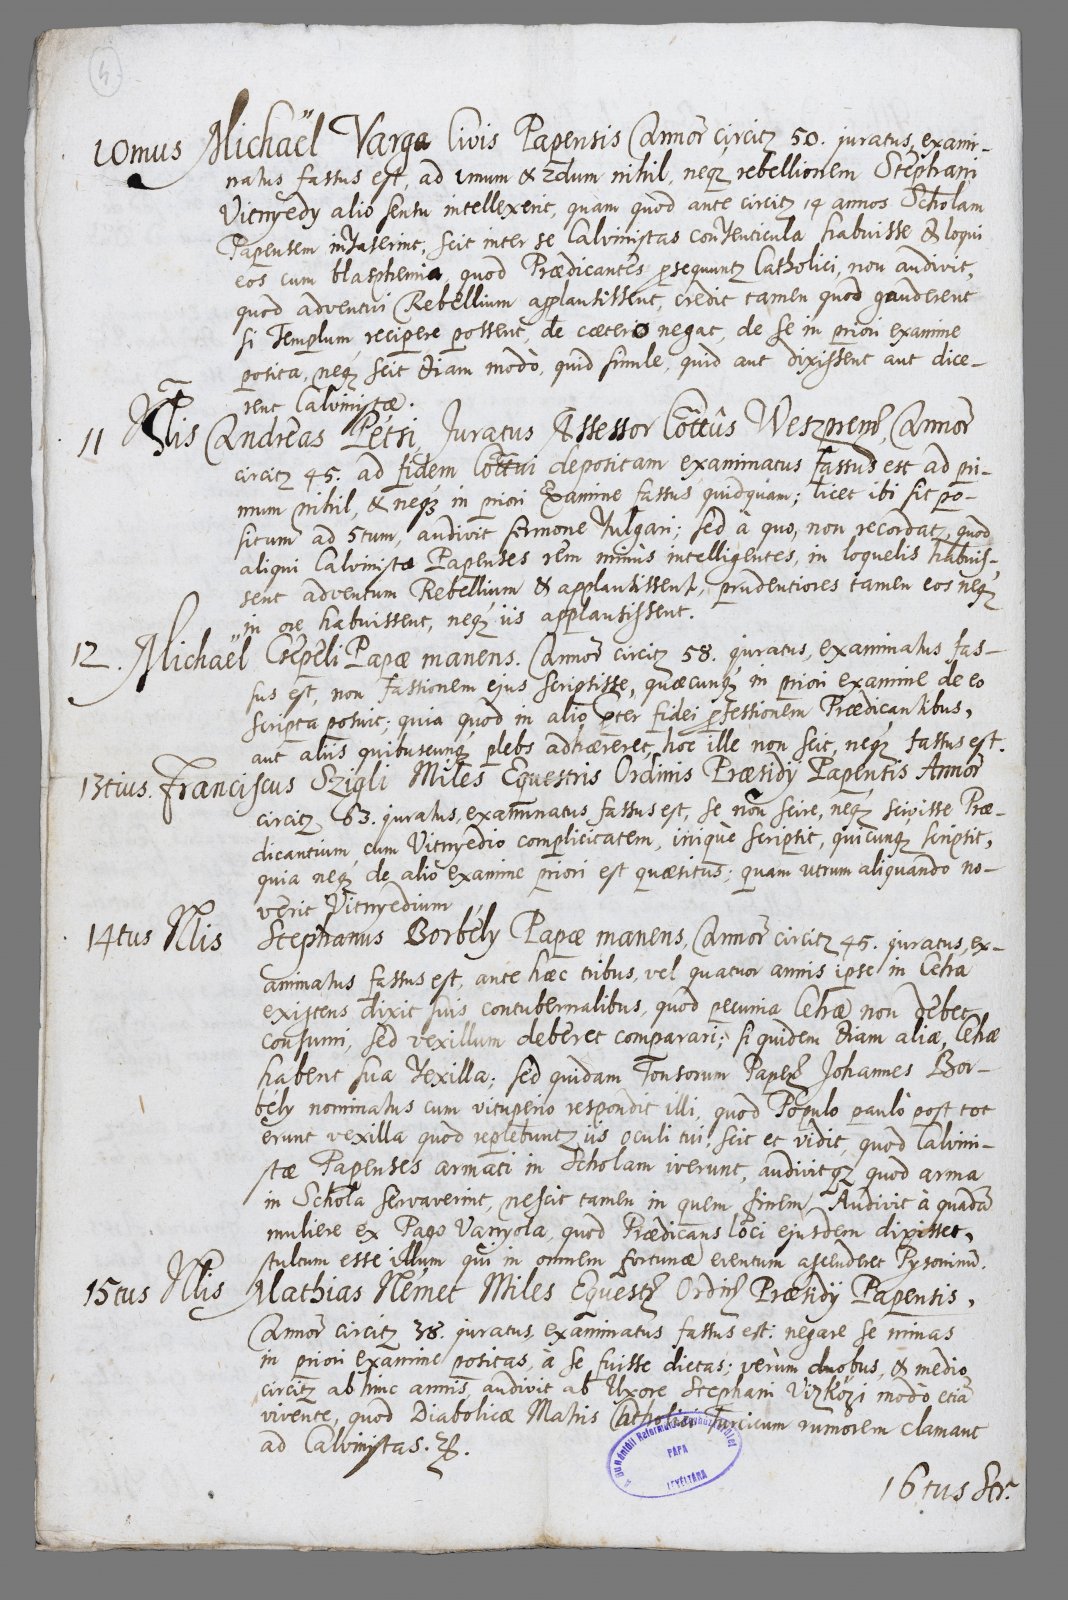 4
10mus Michaël Varga Civis Papensis Annor̃ circitʒ 50. juratus, exami-
natus fassus est, ad 1mum & 2dum nihil, neqʒ rebellionem Stephani
Vitnyedy alio sensu intellexerit, quam quod ante circitʒ 14 annos Scholam
Papensem invaserint, scit inter se Calvinistas conventicula habuisse & loqui
eos cum blasphemia, quod Prædicantes psequuntʒ Catholici, non audivit,
quod adventui Rebellium applausissent, credit tamen quod gauderent
si Templum recipere possent, de cætero negat, de se in priori examine
posita, neqʒ scit Etiam modò, quid simile, quid aut dixissent aut dice-
rent Calvinistæ.
11 Nlis Andreas Pétsi Juratus Assessor Cottûs Weszprem̃, Annor̃
circitʒ 45. ad fidem Cottui depositam examinatus fassus est ad pri-
mum nihil, & neqʒ in priori Examine fassus quidquam; licet ibi sit po-
situm ad 5tum, audivit sermone vulgari; sed à quo, non recordatʒ, quod
aliqui Calvinistæ Papenses rem minùs intelligentes, in loquelis habuis-
sent adventum Rebellium & applausissent, prudentiores tamen eos neqʒ
in ore habuissent, neqʒ iis applausissent.
12. Michaël Csépéli Papæ manens. Annor̃ circitʒ 58. juratus, examinatus fas-
sus est, non fassionem ejus scripsisse, quæcunqʒ in priori examine de eo
scripta posuit; quia quod in alio pter fidei pfessionem Prædicantibus,
aut aliis quibuscunqʒ plebs adhæreret, hoc ille non scit, neqʒ fassus est.
13tius. Franciscus Szigli Miles Equestris Ordinis Præsidy Papensis Annor̃
circitʒ 63. juratus, examinatus fassus est, se non scire, neqʒ scivisse Præ-
dicantium, cum Vitnyedio complicitatem, iniquè scripsit, quicunqʒ scripsit,
quia neqʒ de alio examine priori est quæsitus; quam utrum aliquando no-
verit Vitnyedium
14tus Nlis Stephanus Borbély Papæ manens, Annor̃ circitʒ 45. juratus, ex-
aminatus fassus est, ante hæc tribus, vel quatuor annis ipse in Ceha
existens dixit suis contubernalibus, quod pecunia Cehæ non debet
consumi, sed vexillum deberet comparari; siquidem Etiam aliæ Cehæ
habent sua vexilla; sed quidam Tonsorum Papen̄ Johannes Bor-
bély nominatus cum vituperio respondit illi, quod Populo paulò post tot
erunt vexilla quod replebuntʒ iis oculi tui, scit et vidit, quod Calvini-
stæ Papenses armati in Scholam iverunt, audivitqʒ quod arma
in Schola servaverint, nescit tamen in quem finem. Audivit à quadã
muliere ex Pago Vanyola, quod Prædicans loci ejusdem dixisset,
stultum esse illum qui in omnem fortunæ eventum ascenderet
15tus Nlis Mathias Német Miles Equestʒ Ordin̄ Præsidy Papensis,
Annor̃ circitʒ 38. juratus examinatus fassus est: negare se minas
in priori examine positas, à se fuisse dictas; verùm duobus, & medio
circitʒ abhinc annis, audivit ab Uxore Stephani Vizközi modò etiã
vivente, quod Diabolicæ Matris Catholici Turcicum rumorem clamant
ad Calvinistas. &.
A Dunántúli Református Egyházkerület
PÁPA
LEVÉLTÁRA
16tus Str.